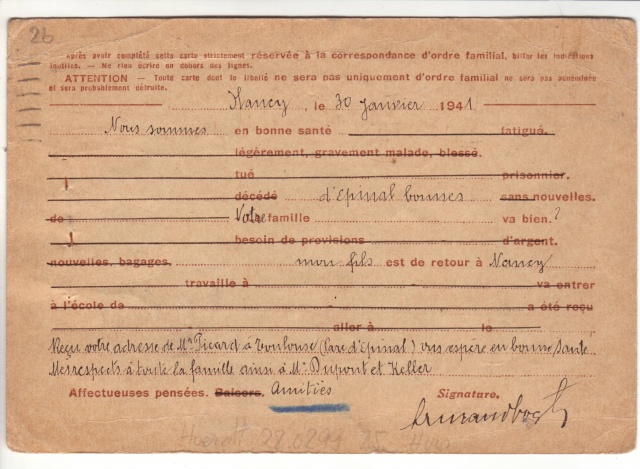 26
Après avoir complété cette carte strictement réservée à la correspondance d'ordre familial, biffer les indications
inutiles. — Ne rien écrire en dehors des lignes.
ATTENTION — Toute carte dont le libellé ne sera pas uniquement d'ordre familial ne sera pas acheminée
et sera probablement détruite.
Nancy, le 30 Janvier 1941
Nous sommes en bonne santé fatigué.
légèrement, gravement malade, blessé.
tué prisonnier.
décédé d'Epinal bonnes sans nouvelles.
de Votre famille va bien.?
besoin de provisions d'argent.
nouvelles, bagages. mon fils est de retour à Nancy
travaille à va entrer
à l'école de a été reçu
aller à le
Reçu votre adresse de Mr Picard à Toulouse (Parc d'Epinal) vous espère en bonne santé
Mes respects à toute la famille ainsi à Mr Dupont et Keller
Affectueuses pensées. Baisers. Amitiés Signature.